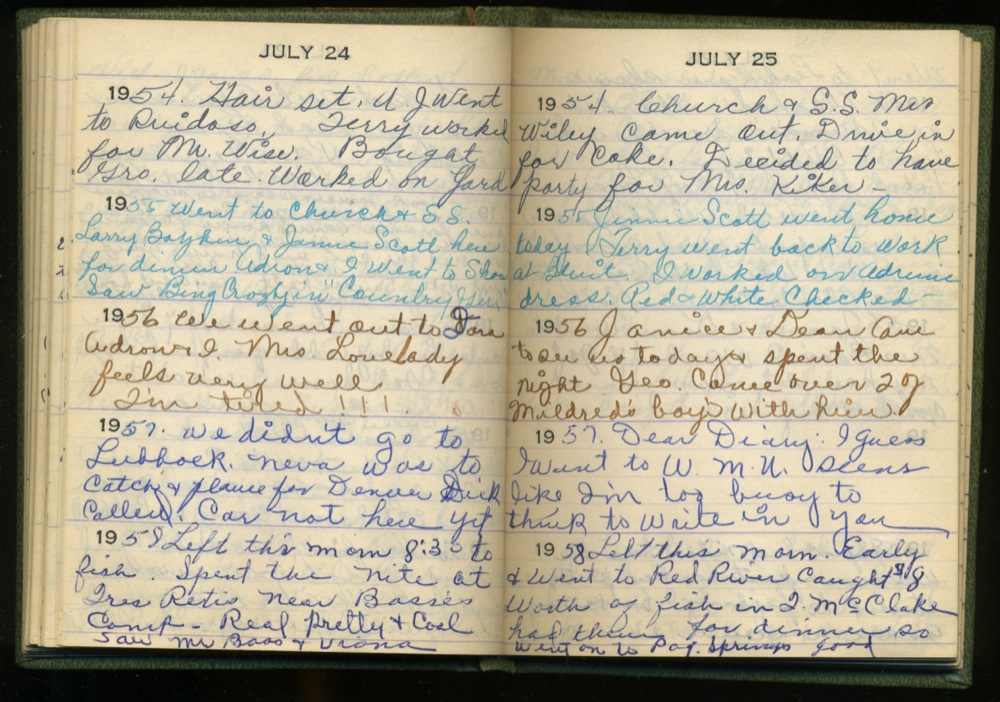 JULY 24
1954. Hair set. U J Went
to Ruidoso, Terry worked
for Mr. Wise. Bought
Gro. late. Worked on Yard
1955 Went to Church & S.S.
Larry Boykin & Jannie Scott here
for dinner Adron & I Went to Show
Saw Bing Crosby in "Country Girl"
1956 We went out to Dora
Adron & I. Mrs. Lovelady
feels very well
I'm tired!!!
1957. We didn't go to
Lubbock. Neva was to
Catch a plane for Denver Dick
Called. Car not here yet
1958 Left this morn 8:30 to
fish. Spent the nite at
Tres Retis Near Basses
Camp - Real pretty & Cool
Saw Mr Bass &
JULY 25
1954. Church & S.S. Mrs
Wiley Came out. Drive in
for Coke. Decided to have
party for Mrs. Kiker -
1955 Jimmie Scott went home
today Terry went back to work
at I worked on
dress. Red & White Checked -
1956 Janice & Dean Came
to see us today & spent the
night Geo. Came over 2 of
Mildred's boys with him.
1957. Dear Diary. I guess
I went to W.M.U. Seems
like I'm too busy to
think to write in You
1958 Left this morn. Early
& Went to Red River Caught
Worth of fish in
had them for dinner so
Went on to Pag. Springs good